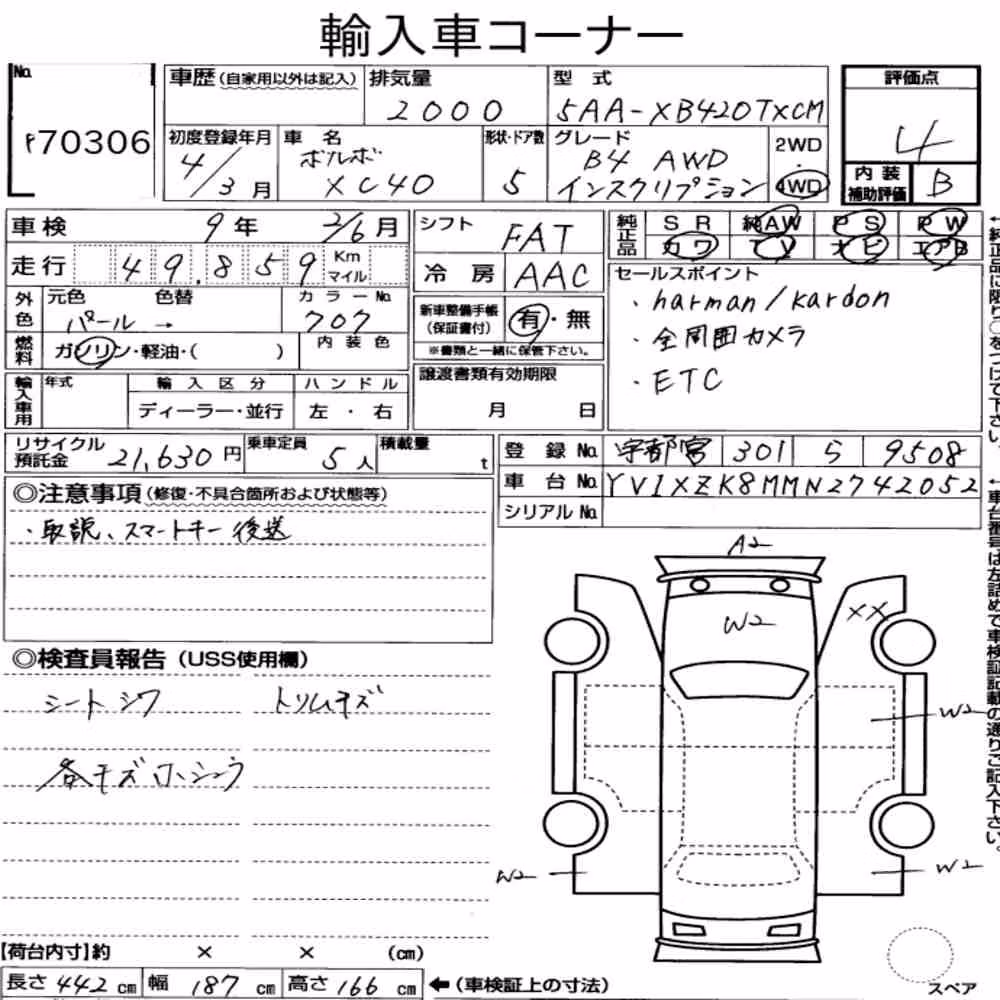 輸入車コーナー
No.
P70306
車歴 (自家用以外は記入)
排気量
2000
型式
5AA-XB420TXCM
評価点
4
内装補助評価
B
初度登録年月
4/3月
車名
ボルボ
XC40
形状・ドア数
5
グレード
B4 AWD
インスクリプション
2WD
・
4WD
車検
9年 2/6月
シフト
FAT
純正品
SR 純AW PS PW
カワ TV ナビ エアB
走行
49,859
Km
マイル
冷房
AAC
セールスポイント
・harman/kardon
・全周囲カメラ
・ETC
外色
元色 色替
パール →
カラーNo.
707
新車整備手帳
(保証書付)
有・無
※書類と一緒に保管下さい。
燃料
ガソリン・軽油・( )
内装色
輸入車用
年式
輸入区分
ディーラー・並行
ハンドル
左・右
譲渡書類有効期限
月 日
リサイクル預託金
21,630円
乗車定員
5人
積載量
t
登録No.
宇都宮 301 ら 9508
車台No.
YV1XZK8MMN2742052
シリアルNo.
◎注意事項 (修復・不具合箇所および状態等)
・取説、スマートキー後送
◎検査員報告 (USS使用欄)
シートシワ トリムキズ
各キズ
A2
W2
XX
W2
W2
W2
【荷台内寸】約 × × (cm)
長さ 442 cm 幅 187 cm 高さ 166 cm ←(車検証上の寸法)
スペア
←純正品に限り○をつけて下さい。
←車台番号は左詰めで車検証記載の通りご記入下さい。